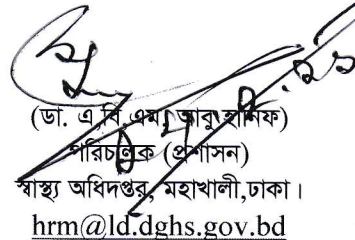 (ডা. এ বি এম আবু হানিফ)
পরিচালক (প্রশাসন)
স্বাস্থ্য অধিদপ্তর, মহাখালী,ঢাকা।
hrm@ld.dghs.gov.bd